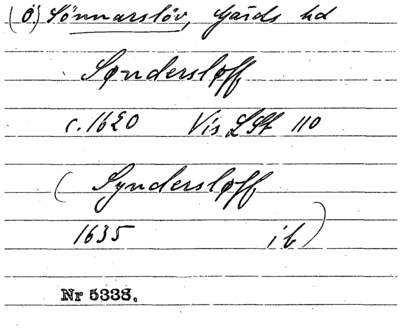 (Ö.) Sönnarslöv, Gärds hd
Søndersløff
c. 1620 Vis LSt 110
(Syndersløff
1635 ib)
Nr 5333.